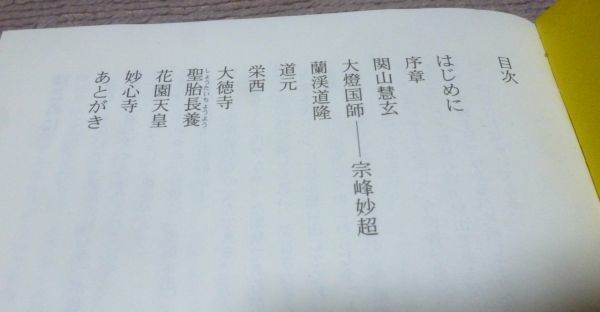 目次
はじめに
序章
関山慧玄
大燈国師――宗峰妙超
蘭渓道隆
道元
栄西
大徳寺
聖胎長養
しょうたいちょうよう
花園天皇
妙心寺
あとがき